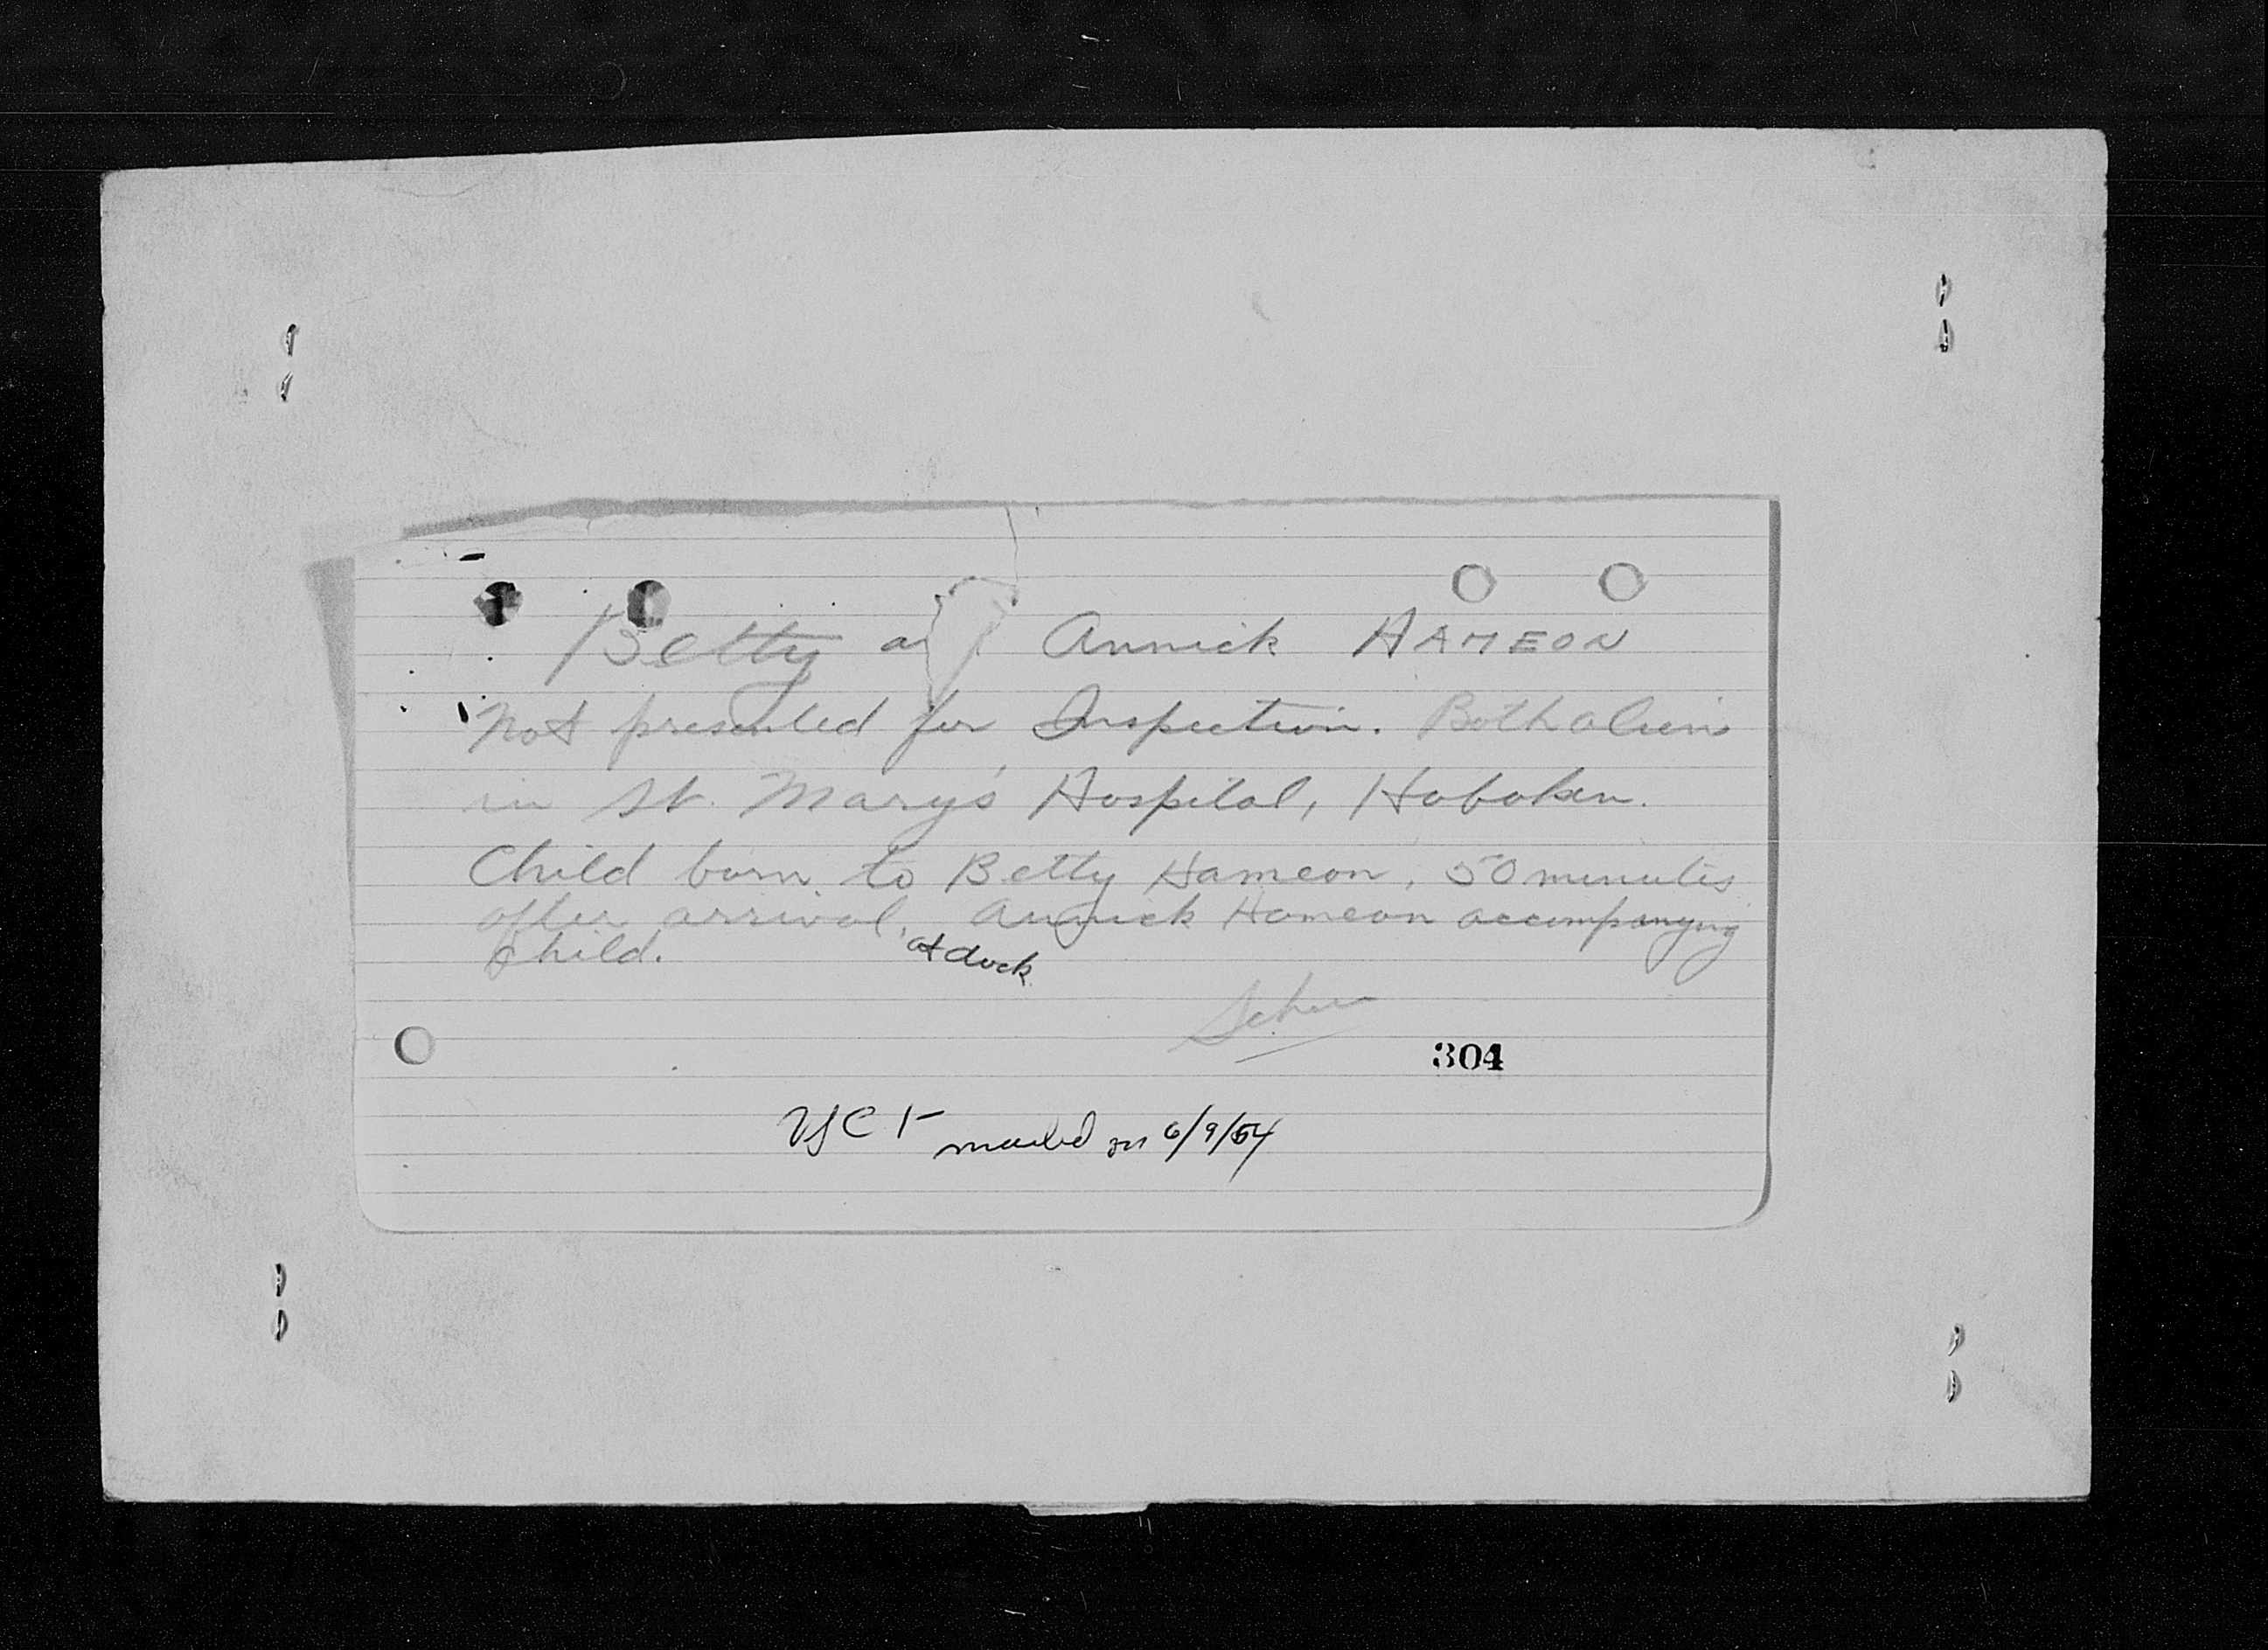 Betty a Annick HAMEON
Not presented for Inspection. Both aliens
in St. Mary's Hospital, Hoboken.
Child born to Betty Hameon, 50 minutes
after arrival, Annick Hameon accompanying
at dock
child.
304
mailed on 6/9/54